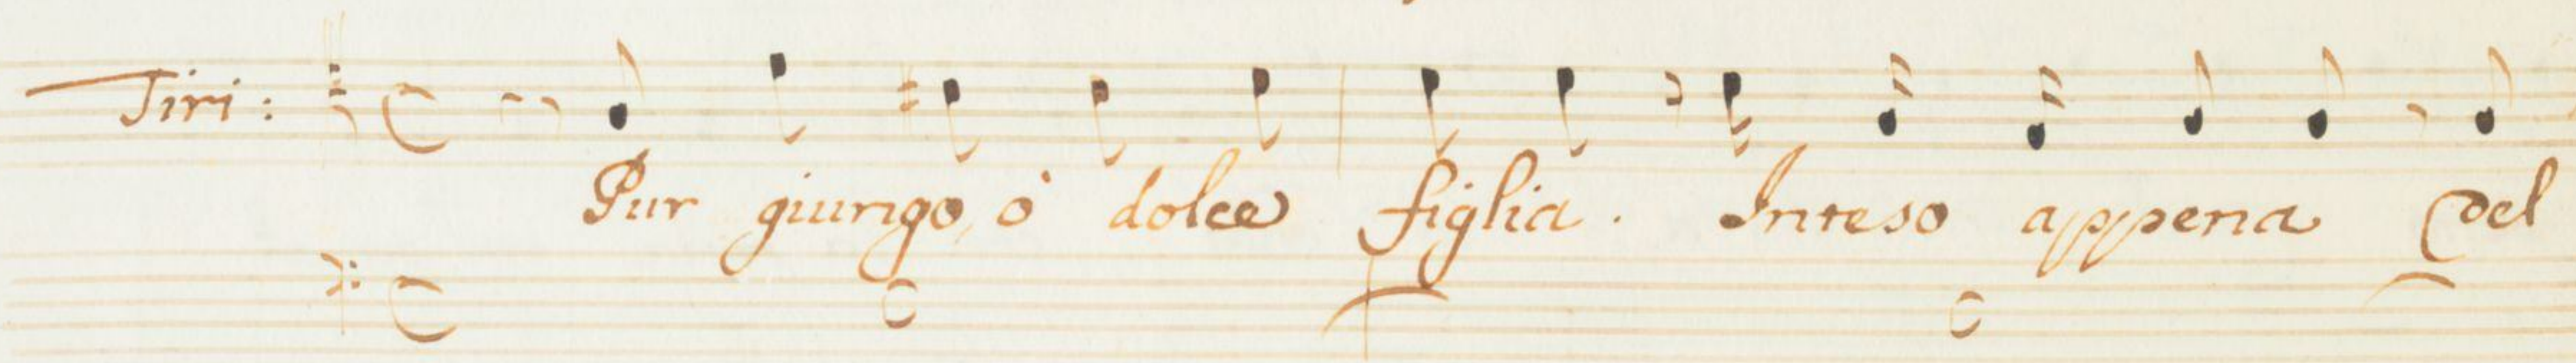 Tiri:
Pur giungo, ò dolce figlia. Inteso appena Del